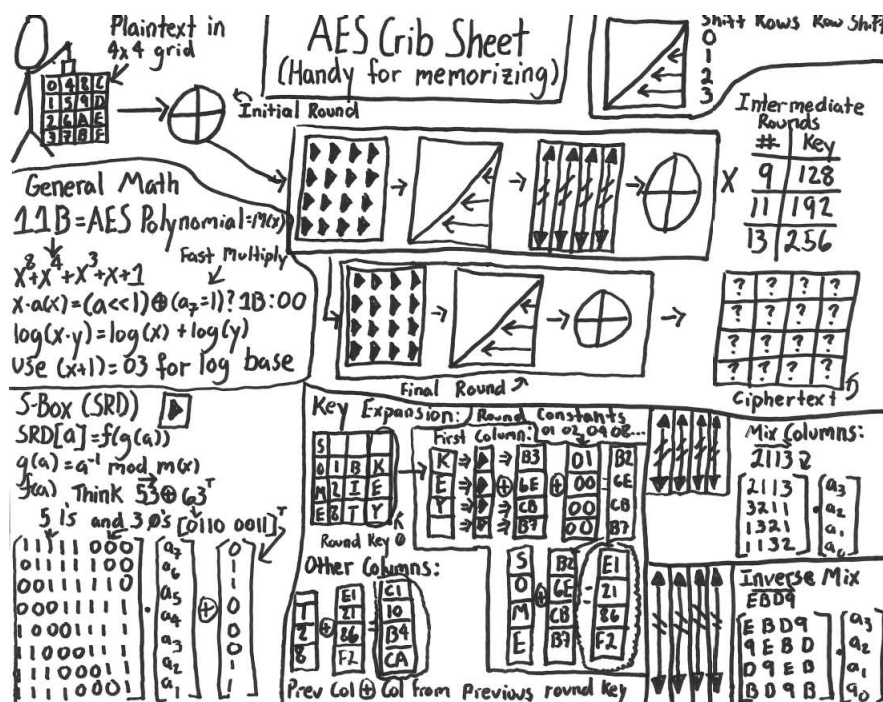 Plaintext in
4x4 grid
0 4 8 C
1 5 9 D
2 6 A E
3 7 B F
Initial Round
AES Crib Sheet
(Handy for memorizing)
Shift Rows Row Shift
0
1
2
3
Intermediate
Rounds
# Key
9 128
11 192
13 256
X
General Math
11B=AES Polynomial=M(x)
x⁸+x⁴+x³+x+1
Fast Multiply
x·a(x)=(a<<1)⊕(a₇=1)?1B:00
log(x·y)=log(x)+log(y)
Use (x+1)=03 for log base
Final Round
? ? ? ?
? ? ? ?
? ? ? ?
? ? ? ?
Ciphertext
S-Box (SRD)
SRD[a]=f(g(a))
g(a)=a⁻¹ mod m(x)
f(a) Think 53⊕63ᵀ
5 1's and 3 0's [0110 0011]ᵀ
1 1 1 1 1 0 0 0
0 1 1 1 1 1 0 0
0 0 1 1 1 1 1 0
0 0 0 1 1 1 1 1
1 0 0 0 1 1 1 1
1 1 0 0 0 1 1 1
1 1 1 0 0 0 1 1
1 1 1 1 0 0 0 1
a₇
a₆
a₅
a₄
a₃
a₂
a₁
⊕
0
1
1
0
0
0
1
1
Key Expansion:
Round Constants
01 02 04 08...
First Column:
S
O 1 B K
M 2 I E
E 8 T Y
Round Key 0
K
E
Y
B3
6E
CB
B7
01
00
00
00
B2
6E
CB
B7
Other Columns:
1
2
8
E1
21
86
F2
C1
10
B4
CA
S
O
M
E
B2
6E
CB
B7
E1
21
86
F2
Prev Col ⊕ Col from Previous round key
Mix Columns:
2113
2113
3211
1321
1132
a₃
a₂
a₁
a₀
Inverse Mix
EBD9
E B D 9
9 E B D
D 9 E B
B D 9 B
a₃
a₂
a₁
a₀